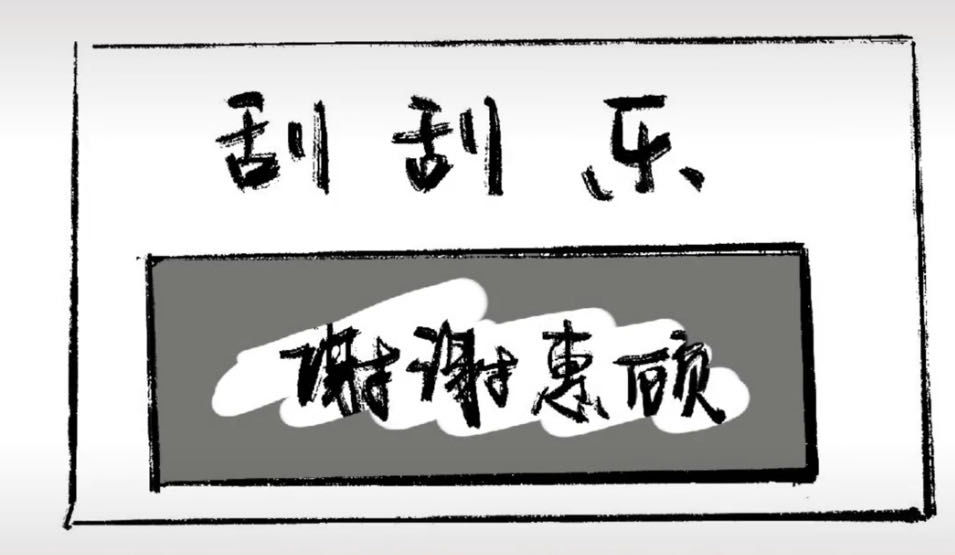 刮刮乐
谢谢惠顾